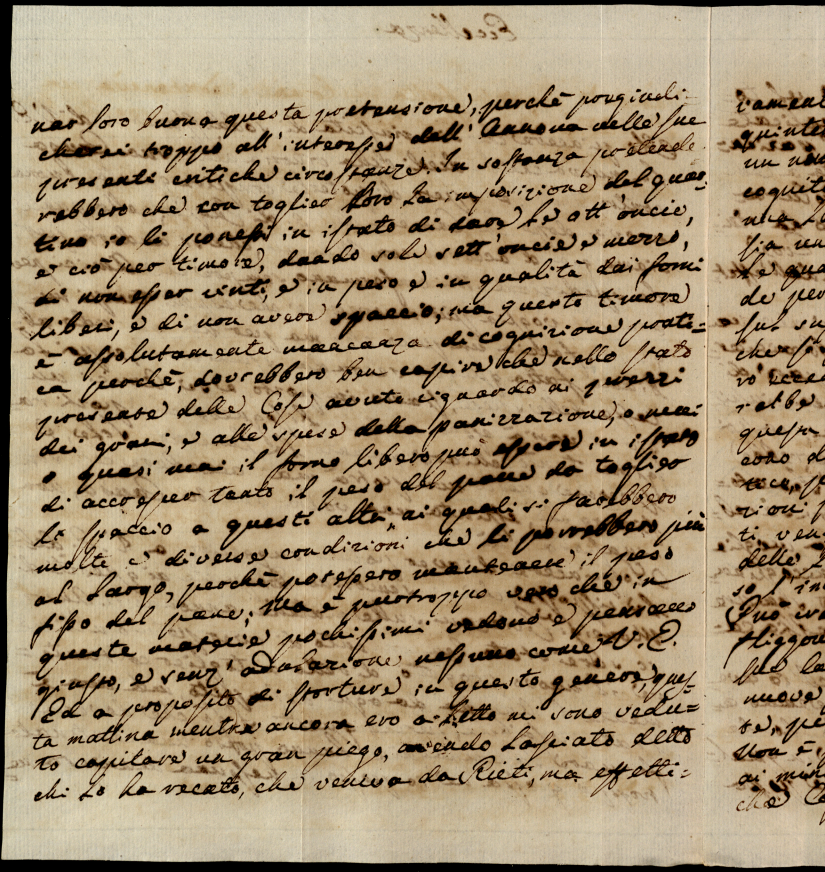 nar loro buona questa pretensione, perchè porgiudi-
cherei troppo all'interesse dell'Annona nelle sue
presenti critiche circostanze. In sostanza pretende-
rebbero che con toglier loro la imposizione del quar-
tino io li ponessi in istato di dare le ott'oncie,
e ciò per timore, dando sole sett'oncie e mezzo,
di non esser vinti, e in peso e in qualità dai forni
liberi, e di non avere spaccio; ma questo timore
è assolutamente mancanza di cognizione prati=
ca perchè, dovrebbero ben capire che nello stato
presente delle Cose avuto riguardo ai prezzi
dei grani, e alle spese della panizzazione, o mai
o quasi mai il forno libero può essere in istato
di accrescer tanto il peso del pane da toglier
lo spaccio a questi altri, ai quali si farebbero
molte e diverse condizioni che li porrebbero più
al largo, perchè potessero mantenere il peso
fisso del pane; Ma è purtroppo vero che in
queste materie pochissimi vedono e pensano
giusto, e senz'adulazione nessuno come V. E.
Ed a proposito di storture in questo genere, ques=
ta mattina mentre ancora ero a letto mi sono vedu=
to capitare un gran piego, avendo lasciato detto
chi lo ha recato, che veniva da Rieti, ma effetti=